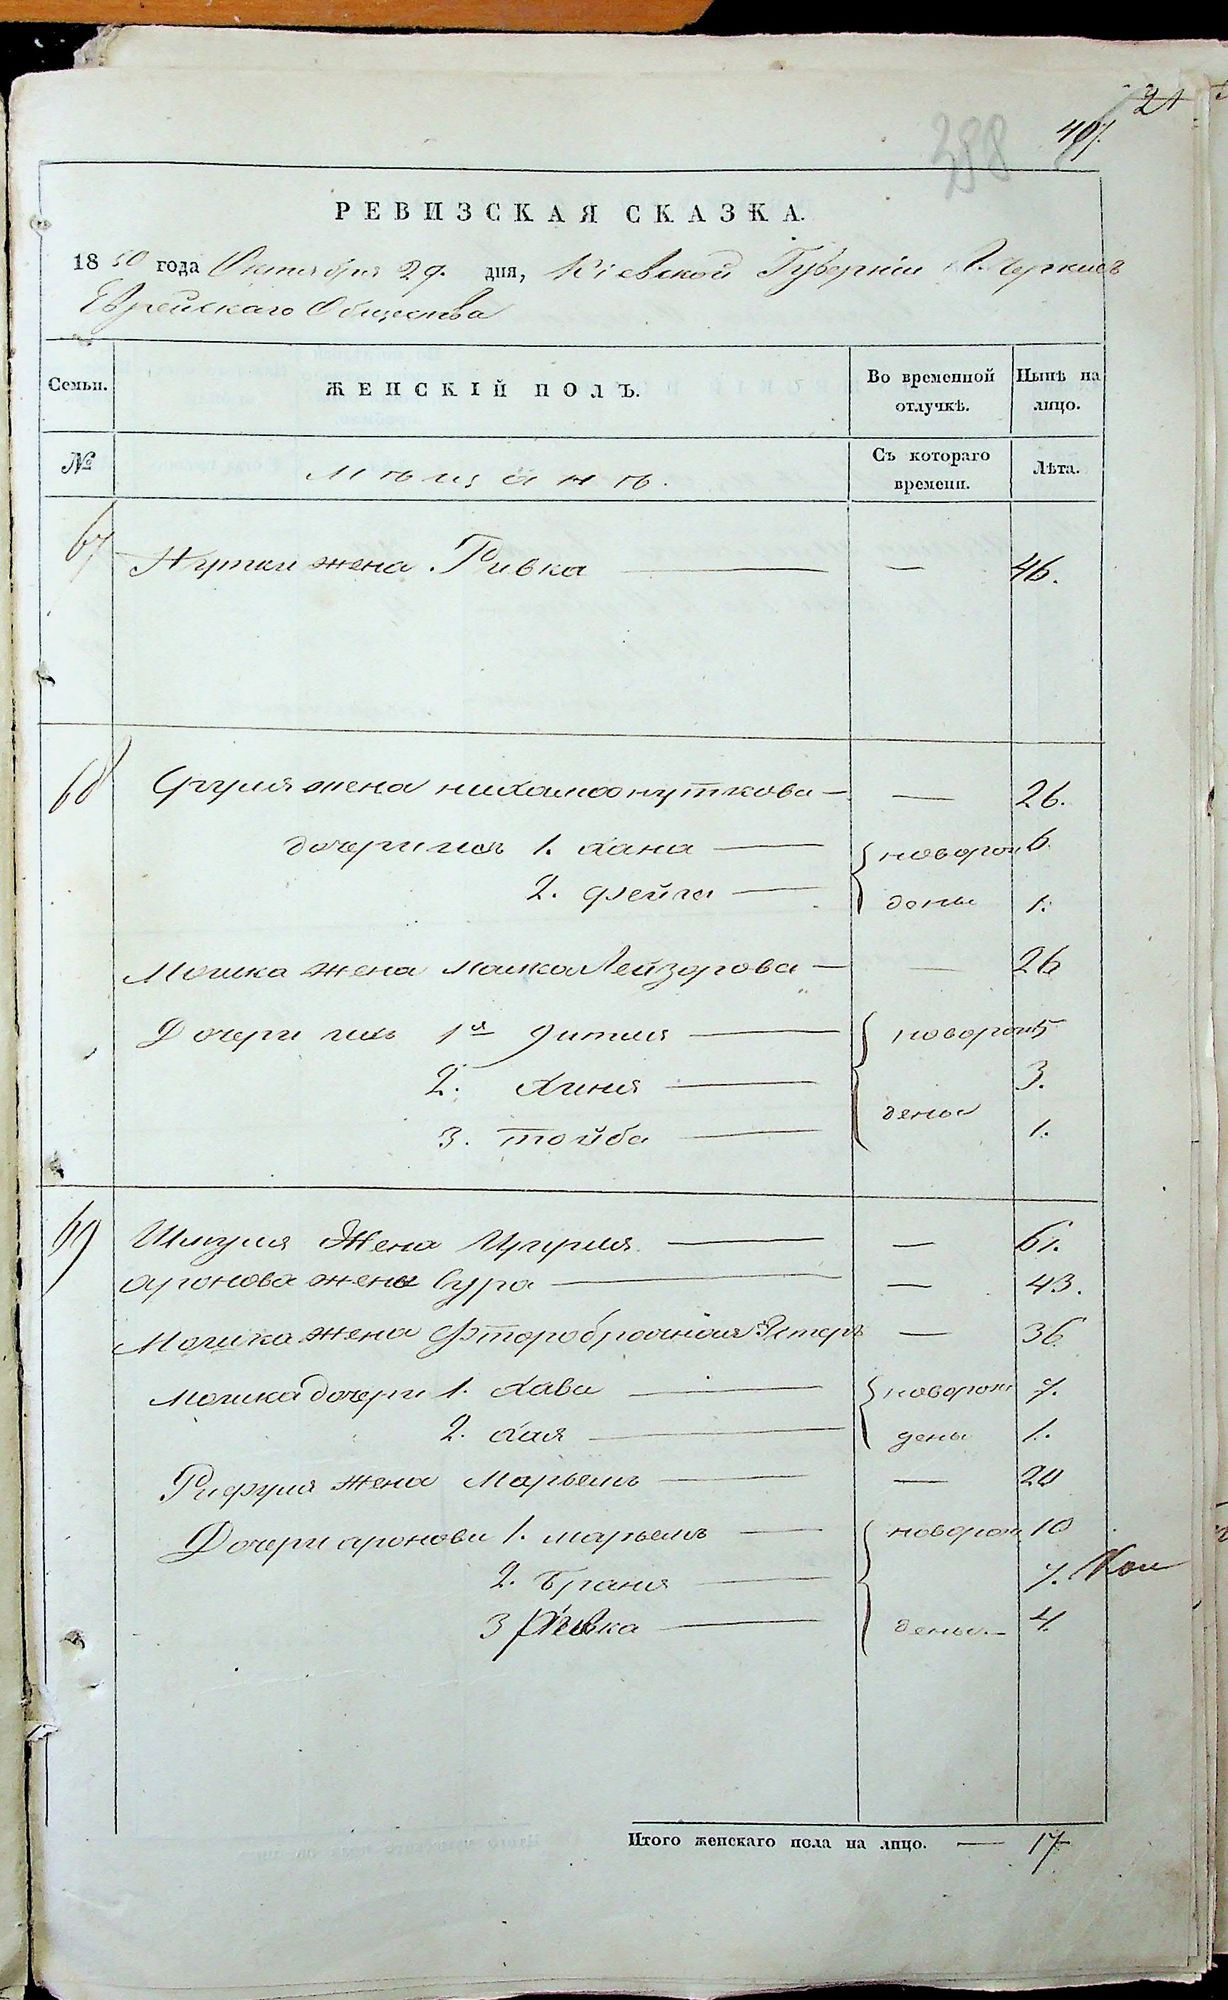 21
407.
388
РЕВИЗСКАЯ СКАЗКА.
1850 года Октября 29. дня, Кіевской Губерніи г. Черкасъ
Еврейскаго Общества
Семьи.
ЖЕНСКІЙ ПОЛЪ.
Во временной отлучкѣ.
Нынѣ на лицо.
№
Мѣщанѣ.
Съ котораго времени.
Лѣта.
67 Нутки жена Ривка — — 46.
68 Сруля жена Нихама Нуткова — — 26.
дочери ихъ 1. Хана — новорож 6
2. Фейга — дены 1.
Мошка жена Малка Лейзорова — — 26
Дочери ихъ 1я Гитля — новорож 5
2. Хиня — 3.
3. Тойба — дены 1.
69 Шмуля Жена Цируля — — 61.
Аронова жена Сура — — 43.
Мошка жена Фторобрачная Эстеръ — 36
Мошка дочери 1. Хава — новорож 7.
2. Хая — дены 1.
Рифуля жена Марьемъ — — 20
Дочери Аронови 1. Марьемъ — новорож 10
2. Браня — 7.
3 Ривка — дены — 4
Итого женскаго пола на лицо. — 17